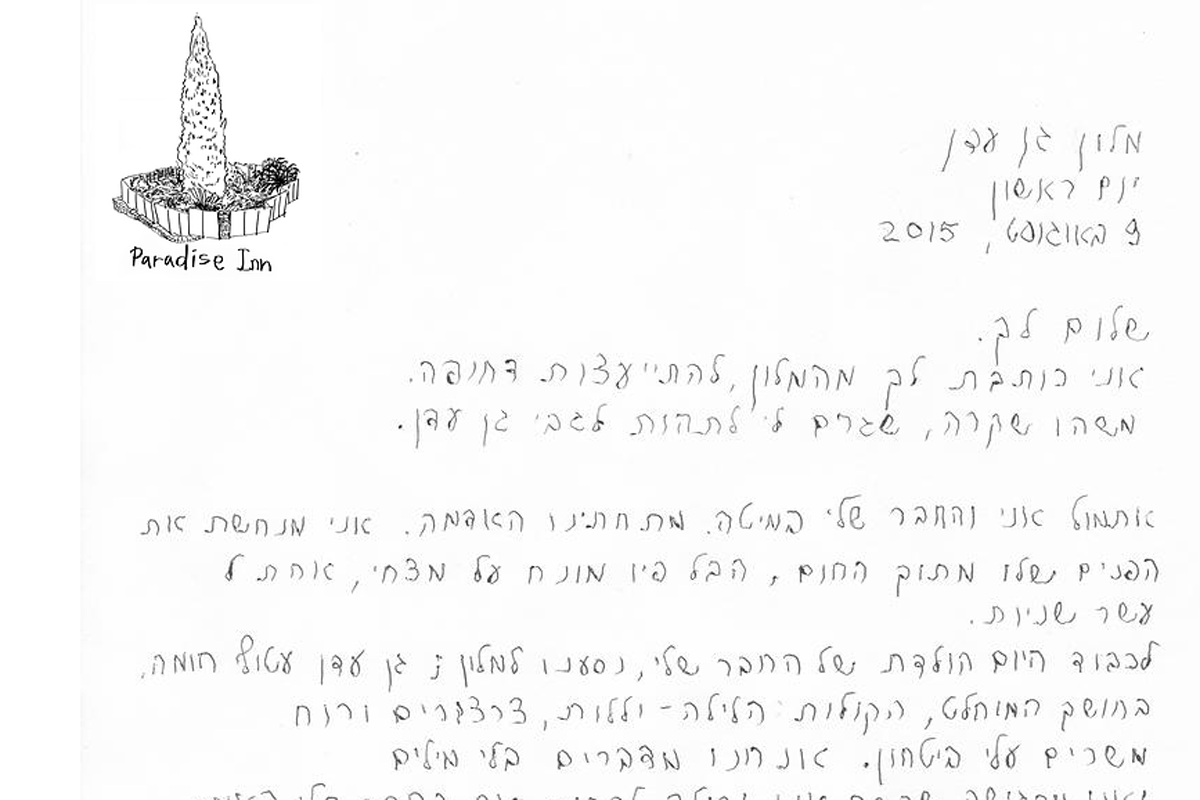 Paradise Inn
מלון גן עדן
יום ראשון
9 באוגוסט, 2015
שלום לך.
אני כותבת לך מהמלון, להתייעצות דחופה.
משהו שקרה, שגרם לי לתהות לגבי גן עדן.
אתמול אני והחבר שלי במיטה. מתחתינו האדמה. אני מנחשת את
הפנים שלו מתוך החום, הבל פיו מונח על מצחי, אחת ל
עשר שניות.
לכבוד היום הולדת של החבר שלי, נסענו למלון; גן עדן עטוף חומה.
בחושך המוחלט, הקולות הלילה - יללות, צרצרים ורוח
משרים עלי ביטחון. אנחנו מדברים בלי מילים